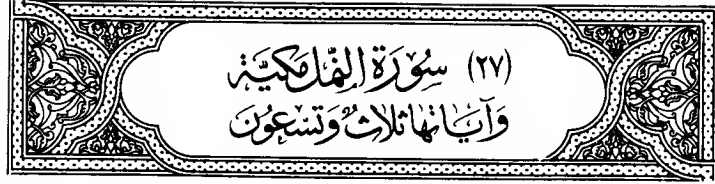 (٢٧) سُورَة النَّمل مَكِيَّة
وَآيَاتهَا ثَلَاثٌ وَتِسْعُونَ